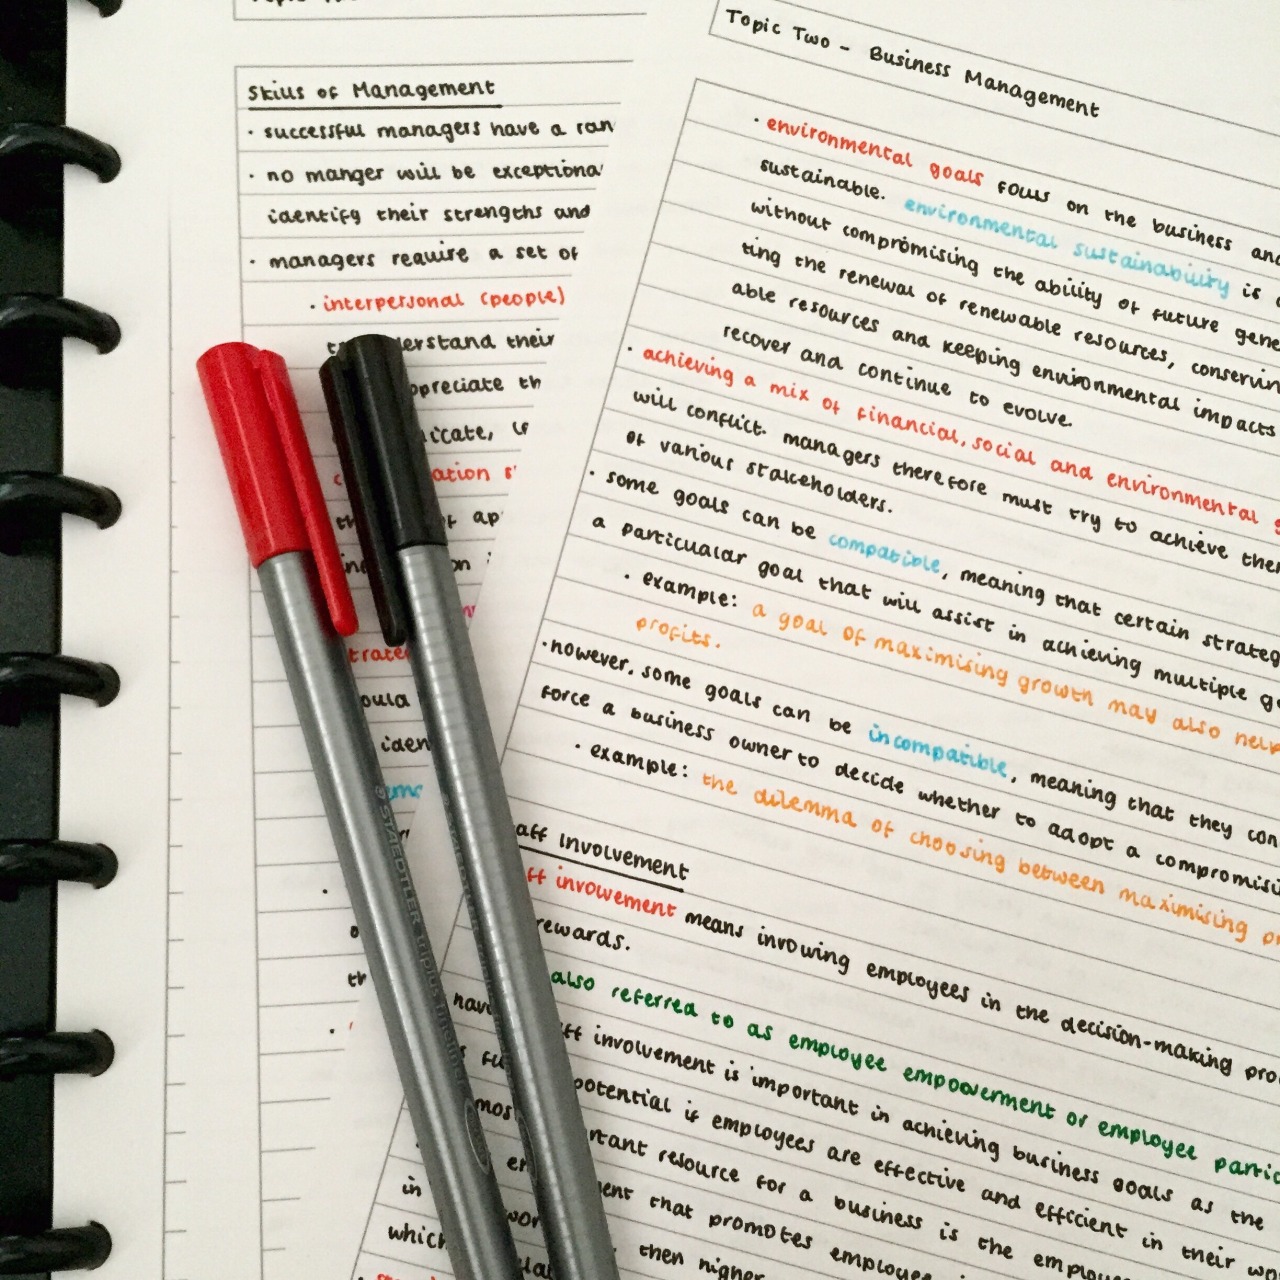 Skills of Management
· successful managers have a ran
· no manger will be exceptiona
identify their strengths and
· managers require a set of
· interpersonal (people)
erstand their
ppreciate th
icate,
ation s
of ap
on i
trate
ould
iden
th
Topic Two - Business Management
· environmental goals focus on the business and
sustainable. environmental sustainability is
without compromising the ability of future gene
ting the renewal of renewable resources, conservin
able resources and keeping environmental impacts
recover and continue to evolve.
· achieving a mix of financial, social and environmental g
will conflict. managers therefore must try to achieve the
of various stakeholders.
· some goals can be compatible, meaning that certain strateg
a particualar goal that will assist in achieving multiple g
· example: a goal of maximising growth may also help
profits.
· however, some goals can be incompatible, meaning that they con
force a business owner to decide whether to adopt a compromisi
· example: the dilemma of choosing between maximising pr
aff Involvement
ff invovement means invoving employees in the decision-making pro
rewards.
also referred to as employee empowerment or employee partic
hav ff involvement is important in achieving business goals as the
s fu potential if employees are effective and efficient in their
mos rtant resource for a business is the employe
en ent that promotes employee
in wor then higher
which
STAEDTLER triplus fineliner